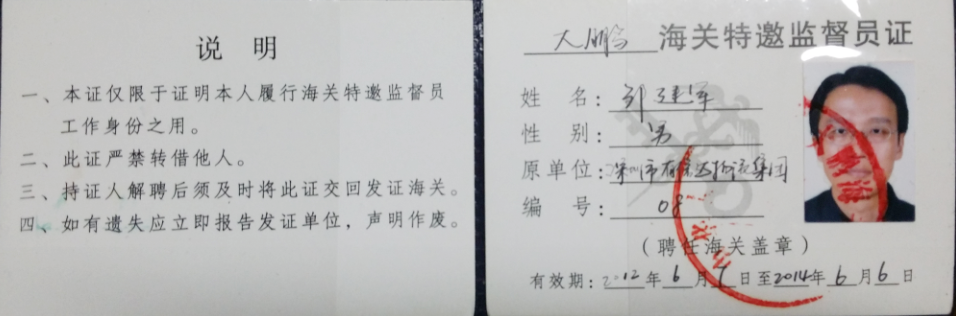 说 明
一、本证仅限于证明本人履行海关特邀监督员
工作身份之用。
二、此证严禁转借他人。
三、持证人解聘后须及时将此证交回发证海关。
四、如有遗失应立即报告发证单位，声明作废。
大鹏 海关特邀监督员证
姓 名：邹建军
性 别：男
原单位：深圳市有信达物流集团
编 号：08
（聘任海关盖章）
有效期：2012年6月7日至2014年6月6日